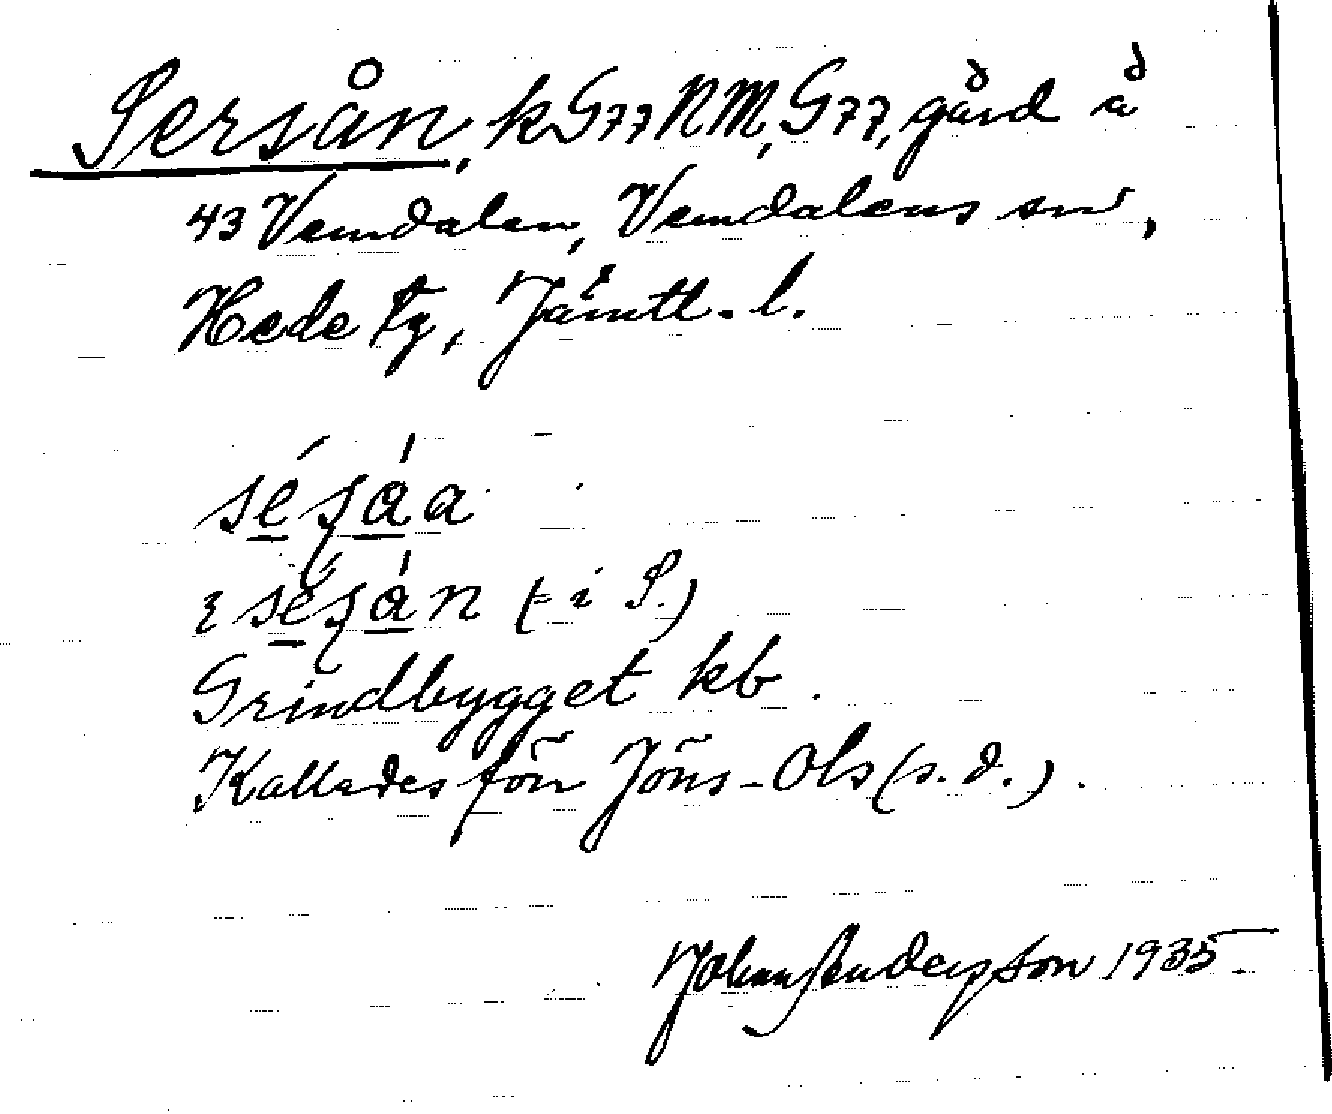 Sersån, k G77 NM, G77, gård å
43 Vemdalen, Vemdalens sn,
Hede tg, Jämtl. l.
séʂáa
ɩ séʂán (= i S.)
Grindbygget kb.
Kallades förr Jöns-Ols (s. d.).
Johan Anderzson 1935